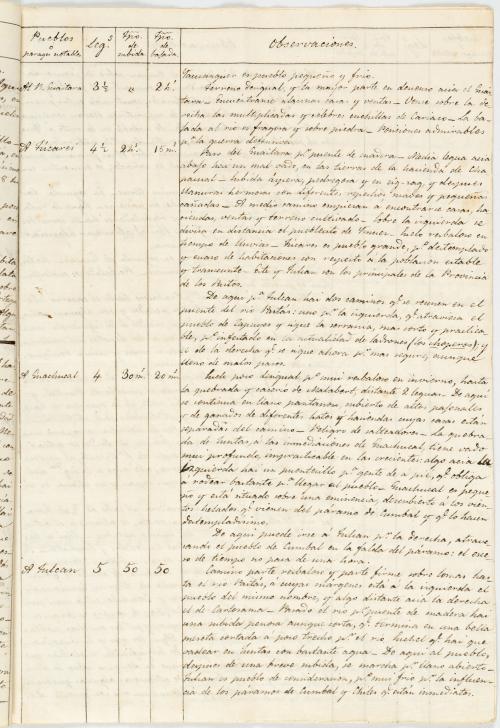 Pueblos
paragˢ notables
Leg.ˢ
Tpo.
de
subida
Tpo.
de
bajada
Observaciones.
es pueblo pequeño y frio.
Al R. Guaitara 3½ " 2h.
Terreno desigual, y la mayor parte en descenso acia el Guai-
tara – Encuentranse algunas casas y ventas – Vese sobre la de-
recha las multiplicadas y celebres cuchillas de – La ba-
jada al rio es fragosa y sobre piedra – Posiciones admirables
pª la guerra defensiva.
A Túcares 4½ 2h. 15m.
Paso del Guaitara pʳ puente de madera – Media legua acia
abajo hai un mal vado, en las tierras de la hacienda de Cha
– Subida ligera, pedregosa y en zig-zag, y despues
llanuras hermosas con diferentes repechos suaves y pequeñas
cañadas – A medio camino empiezan á encontrarse casas, ha-
ciendas, ventas y terreno cultivado – Sobre la izquierda se
divisa en distancia el pueblecito de – Suelo resbaloso en
tiempo de lluvias – Túcares es pueblo grande, pº destemplado
y escaso de habitaciones con respecto á la poblacion estable
y transeunte – este y Tulcan son los principales de la Provincia
de los Pastos.
De aquí pª Tulcan hai dos caminos qᵉ se reunen en el
puente del rio : uno pʳ la izquierda, qᵉ atraviesa el
pueblo de y sigue la serrania, mas corto y practica-
ble, pº infestado en la actualidad de ladrones (los choperos); y
el de la derecha qᵉ se sigue ahora pʳ mas seguro, aunque
lleno de malos pasos.
A Guachucal 4 30m. 20m.
Suelo poco desigual, pº mui resbaloso en invierno, hasta
la quebrada y caserio de , distante 2 leguas. De aquí
se continua en llano pantanoso, cubierto de altos pajonales
y de ganados de diferentes hatos y haciendas cuyas casas estan
separadas del camino – Peligro de salteadores – La quebra-
da de , á las inmediaciones de Guachucal, tiene vado
mui profundo, impracticable en las crecientes: algo acia la
izquierda hai un puentecillo pª gente de á pié, qᵉ obliga
á rodear bastante pª llegar al pueblo – Guachucal es peque-
ño y está situado sobre una eminencia, descubierto á los vien-
tos helados qᵉ vienen del páramo de Cumbal y qᵉ lo hacen
destempladisimo.
De aquí puede irse á Tulcan pʳ la derecha, atrave-
sando el pueblo de Cumbal en la falda del páramo: el exce-
so de tiempo no pasa de una hora.
A Tulcan 5 50 50
Camino parte resbaloso y parte firme sobre lomas has-
ta el rio , á cuyas márgenes está á la izquierda el
pueblo del mismo nombre, y algo distante acia la derecha
el de Carlosama – Pasado el rio pʳ puente de madera hai
una subida penosa aunque corta, qᵉ termina en una bella
meseta cortada á poco trecho pʳ el rio qᵉ hai que
vadear en con bastante agua – De aquí al pueblo,
despues de una breve subida, se marcha pʳ llano abierto –
Tulcan es pueblo de consideracion, pº mui frio pʳ la influen-
cia de los páramos de Cumbal y Chiles qᵉ están inmediatos.